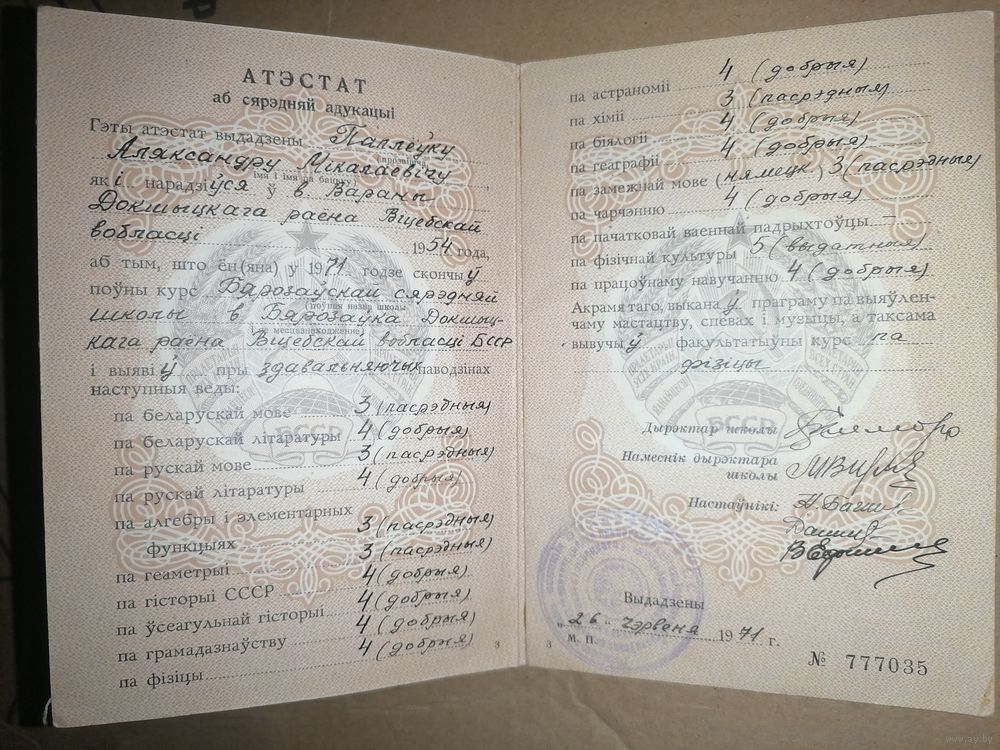 АТЭСТАТ
аб сярэдняй адукацыі
Гэты атэстат выдадзены Паплеўку
(прозвішча,
Аляксандру Мікалаевічу
імя і імя па бацьку)
які нарадзіўся ў в. Вараны
Докшыцкага раёна Віцебскай
вобласці 1954 года,
аб тым, што ён(яна) у 1971 годзе скончыў
поўны курс Бярозаўскай сярэдняй
(поўная назва школы
школы в Бярозаўка Докшыц-
і яе месцазнаходжение)
кага раёна Віцебскай вобласці БССР
і выявіў пры здавальняючых паводзінах
наступныя веды:
па беларускай мове 3 (пасрэдныя)
па беларускай літаратуры 4 (добрыя)
па рускай мове 3 (пасрэдныя)
па рускай літаратуры 4 (добрыя)
па алгебры і элементарных
функцыях 3 (пасрэдныя)
па геаметрыі 3 (пасрэдныя)
па гісторыі СССР 4 (добрыя)
па ўсеагульнай гісторыі 4 (добрыя)
па грамадазнаўству 4 (добрыя)
па фізіцы 4 (добрыя)
3
па астраноміі 4 (добрыя)
па хіміі 3 (пасрэдныя)
па біялогіі 4 (добрыя)
па геаграфіі 4 (добрыя)
па замежнай мове (нямецк) 3 (пасрэдныя)
па чарчэнню 4 (добрыя)
па пачатковай ваеннай падрыхтоўцы —
па фізічнай культуры 5 (выдатныя)
па працоўнаму навучанню 4 (добрыя)
Акрамя таго, выканаў праграму па выяўлен-
чаму мастацтву, спевах і музыцы, а таксама
вывучыў факультатыўны курс па
фізіцы
БССР
БССР
Дырэктар школы
Намеснік дырэктара
школы
Настаўнікі:
Выдадзены
„26" чэрвеня 1971 г.
М. П.
3
№ 777035
www.ay.by